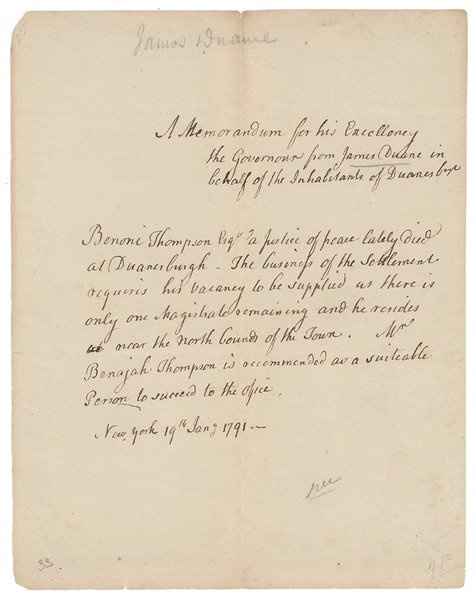 James Duane
A Memorandum for his Excellency
the Governour from James Duane in
behalf of the Inhabitants of Duanesbgh
Benoni Thompson Esqr a Justice of peace lately died
at Duanesburgh - The business of the Settlement
requires his vacancy to be supplied as there is
only one Magistrate remaining and he resides
near the North bounds of the Town. Mr
Benajah Thompson is recommended as a suiteable
Person to succeed to the office.
New York 19th Jany 1791 —
33
750